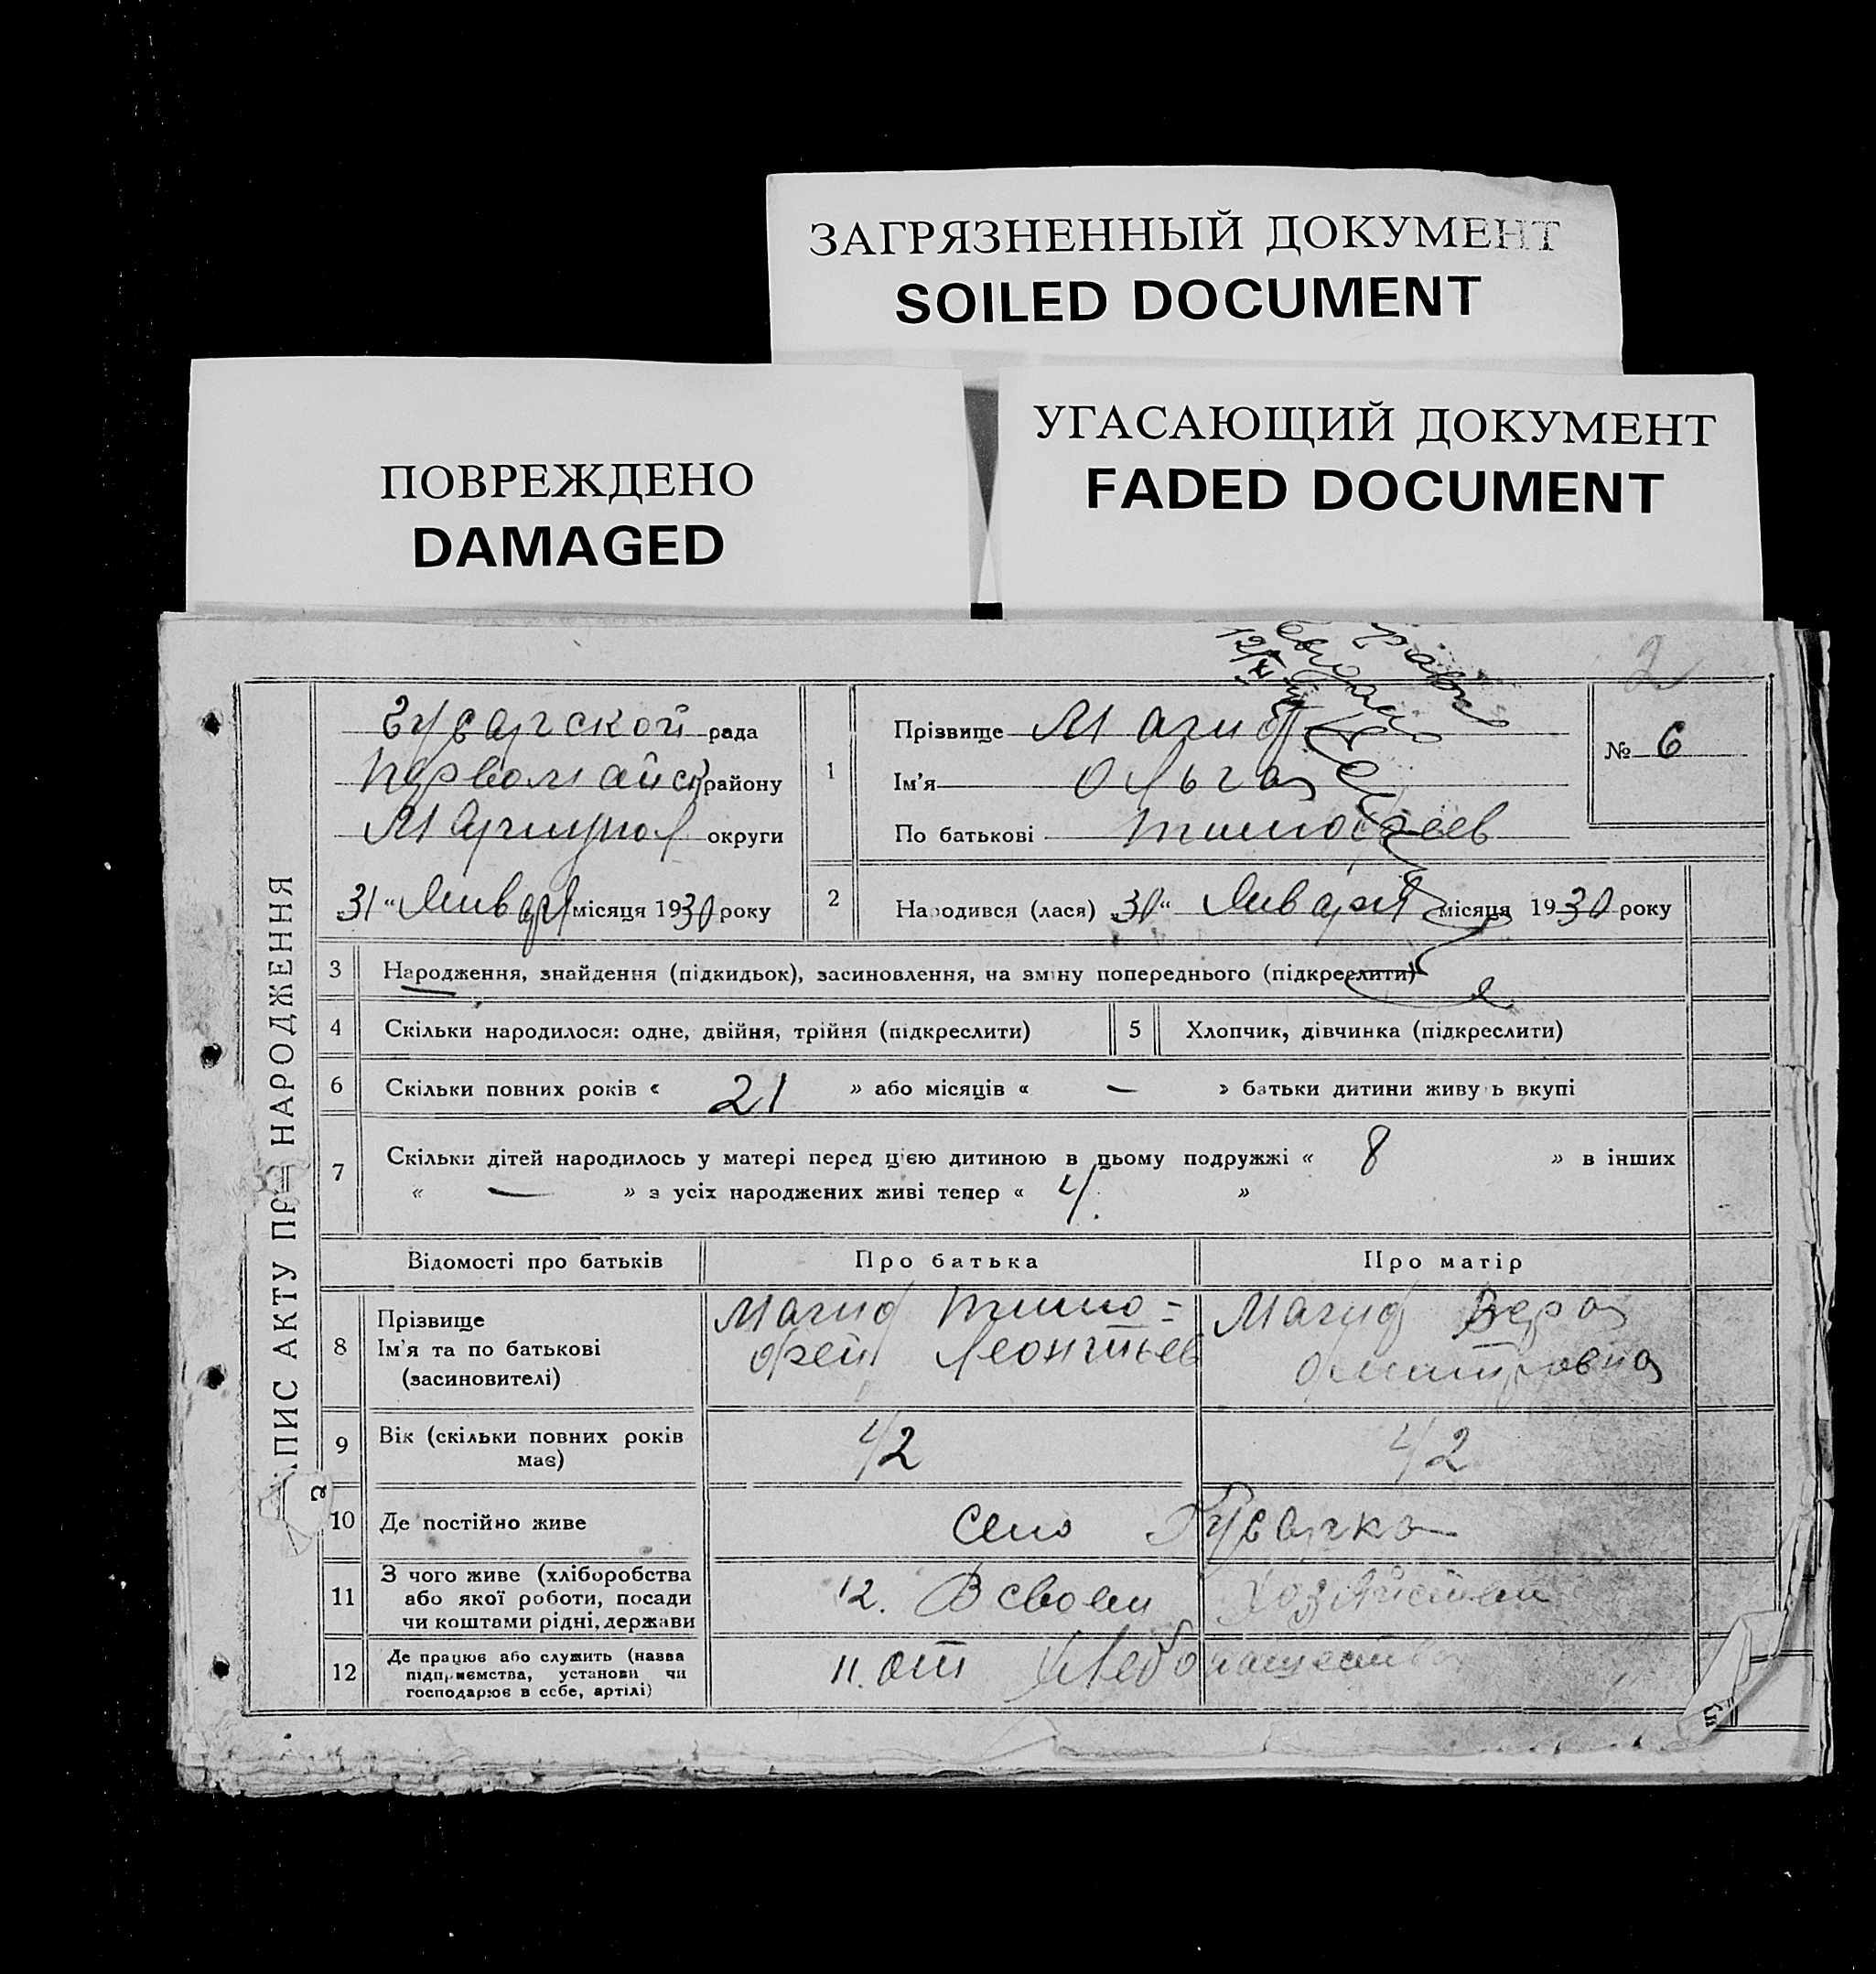 ЗАГРЯЗНЕННЫЙ ДОКУМЕНТ
SOILED DOCUMENT
ПОВРЕЖДЕНО
DAMAGED
УГАСАЮЩИЙ ДОКУМЕНТ
FADED DOCUMENT
2
АПИС АКТУ ПР НАРОДЖЕННЯ
рада
району
Мариупол округи
31 "Января місяця 1930 року
1
Прізвище Магид
Ім'я Ольга
По батькові Тимофеев
№ 6
2
Народився (лася) "30" Января місяця 1930 року
3 Народження, знайдення (підкидьок), засиновлення, на зміну попереднього (підкреслити)
4 Скільки народилося: одне, двійня, трійня (підкреслити)
5 Хлопчик, дівчинка (підкреслити)
6 Скільки повних років « 21 » або місяців « — » батьки дитини живу ь вкупі
7 Скільки дітей народилось у матері перед цією дитиною в цьому подружжі « 8 » в інших
« — » з усіх народжених живі тепер « 4. »
Відомості про батьків
Про батька
Про матір
8 Прізвище
Ім'я та по батькові
(засиновителі)
Магид Тимо-
фей Леонтьев
Магид Вера
Дмитровна
9 Вік (скільки повних років
має)
42
42
10 Де постійно живе
село Гусарка
11 З чого живе (хліборобства
або якої роботи, посади
чи коштами рідні, держави
12. В своем
12 Де працює або служить (назва
підприємства, установи чи
господарює в себе, артілі)
11. от Хлебопашества